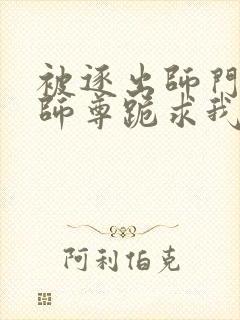 被逐出師門
師尊跪求我
阿利伯克